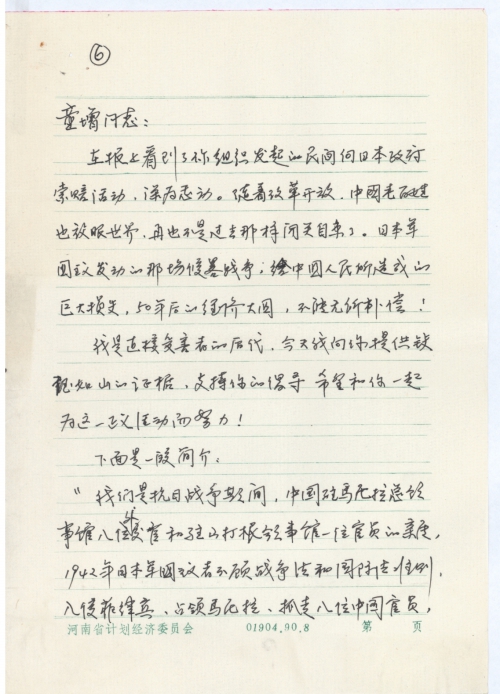 ⑥
童增同志：
在报上看到了你组织发起的民间向日本政府
索赔活动，深为感动。随着改革开放，中国老百姓
也放眼世界，再也不是过去那样闭关自守了。日本军
国主义发动的那场侵略战争；给中国人民所造成的
巨大损失，50年后的经济大国，不能无所补偿！
我是直接受害者的后代，今天我向你提供铁
证如山的证据，支持你的倡导 希望和你一起
为这一正义活动而努力！
下面是一段简介：
"我们是抗日战争期间，中国驻马尼拉总领
事馆八位官员和驻山打根领事馆一位官员的亲属，
1942年日本军国主义者不顾战争法和国际法准则，
入侵菲律宾、占领马尼拉、抓走八位中国官员，
河南省计划经济委员会 01904.90.8 第 页